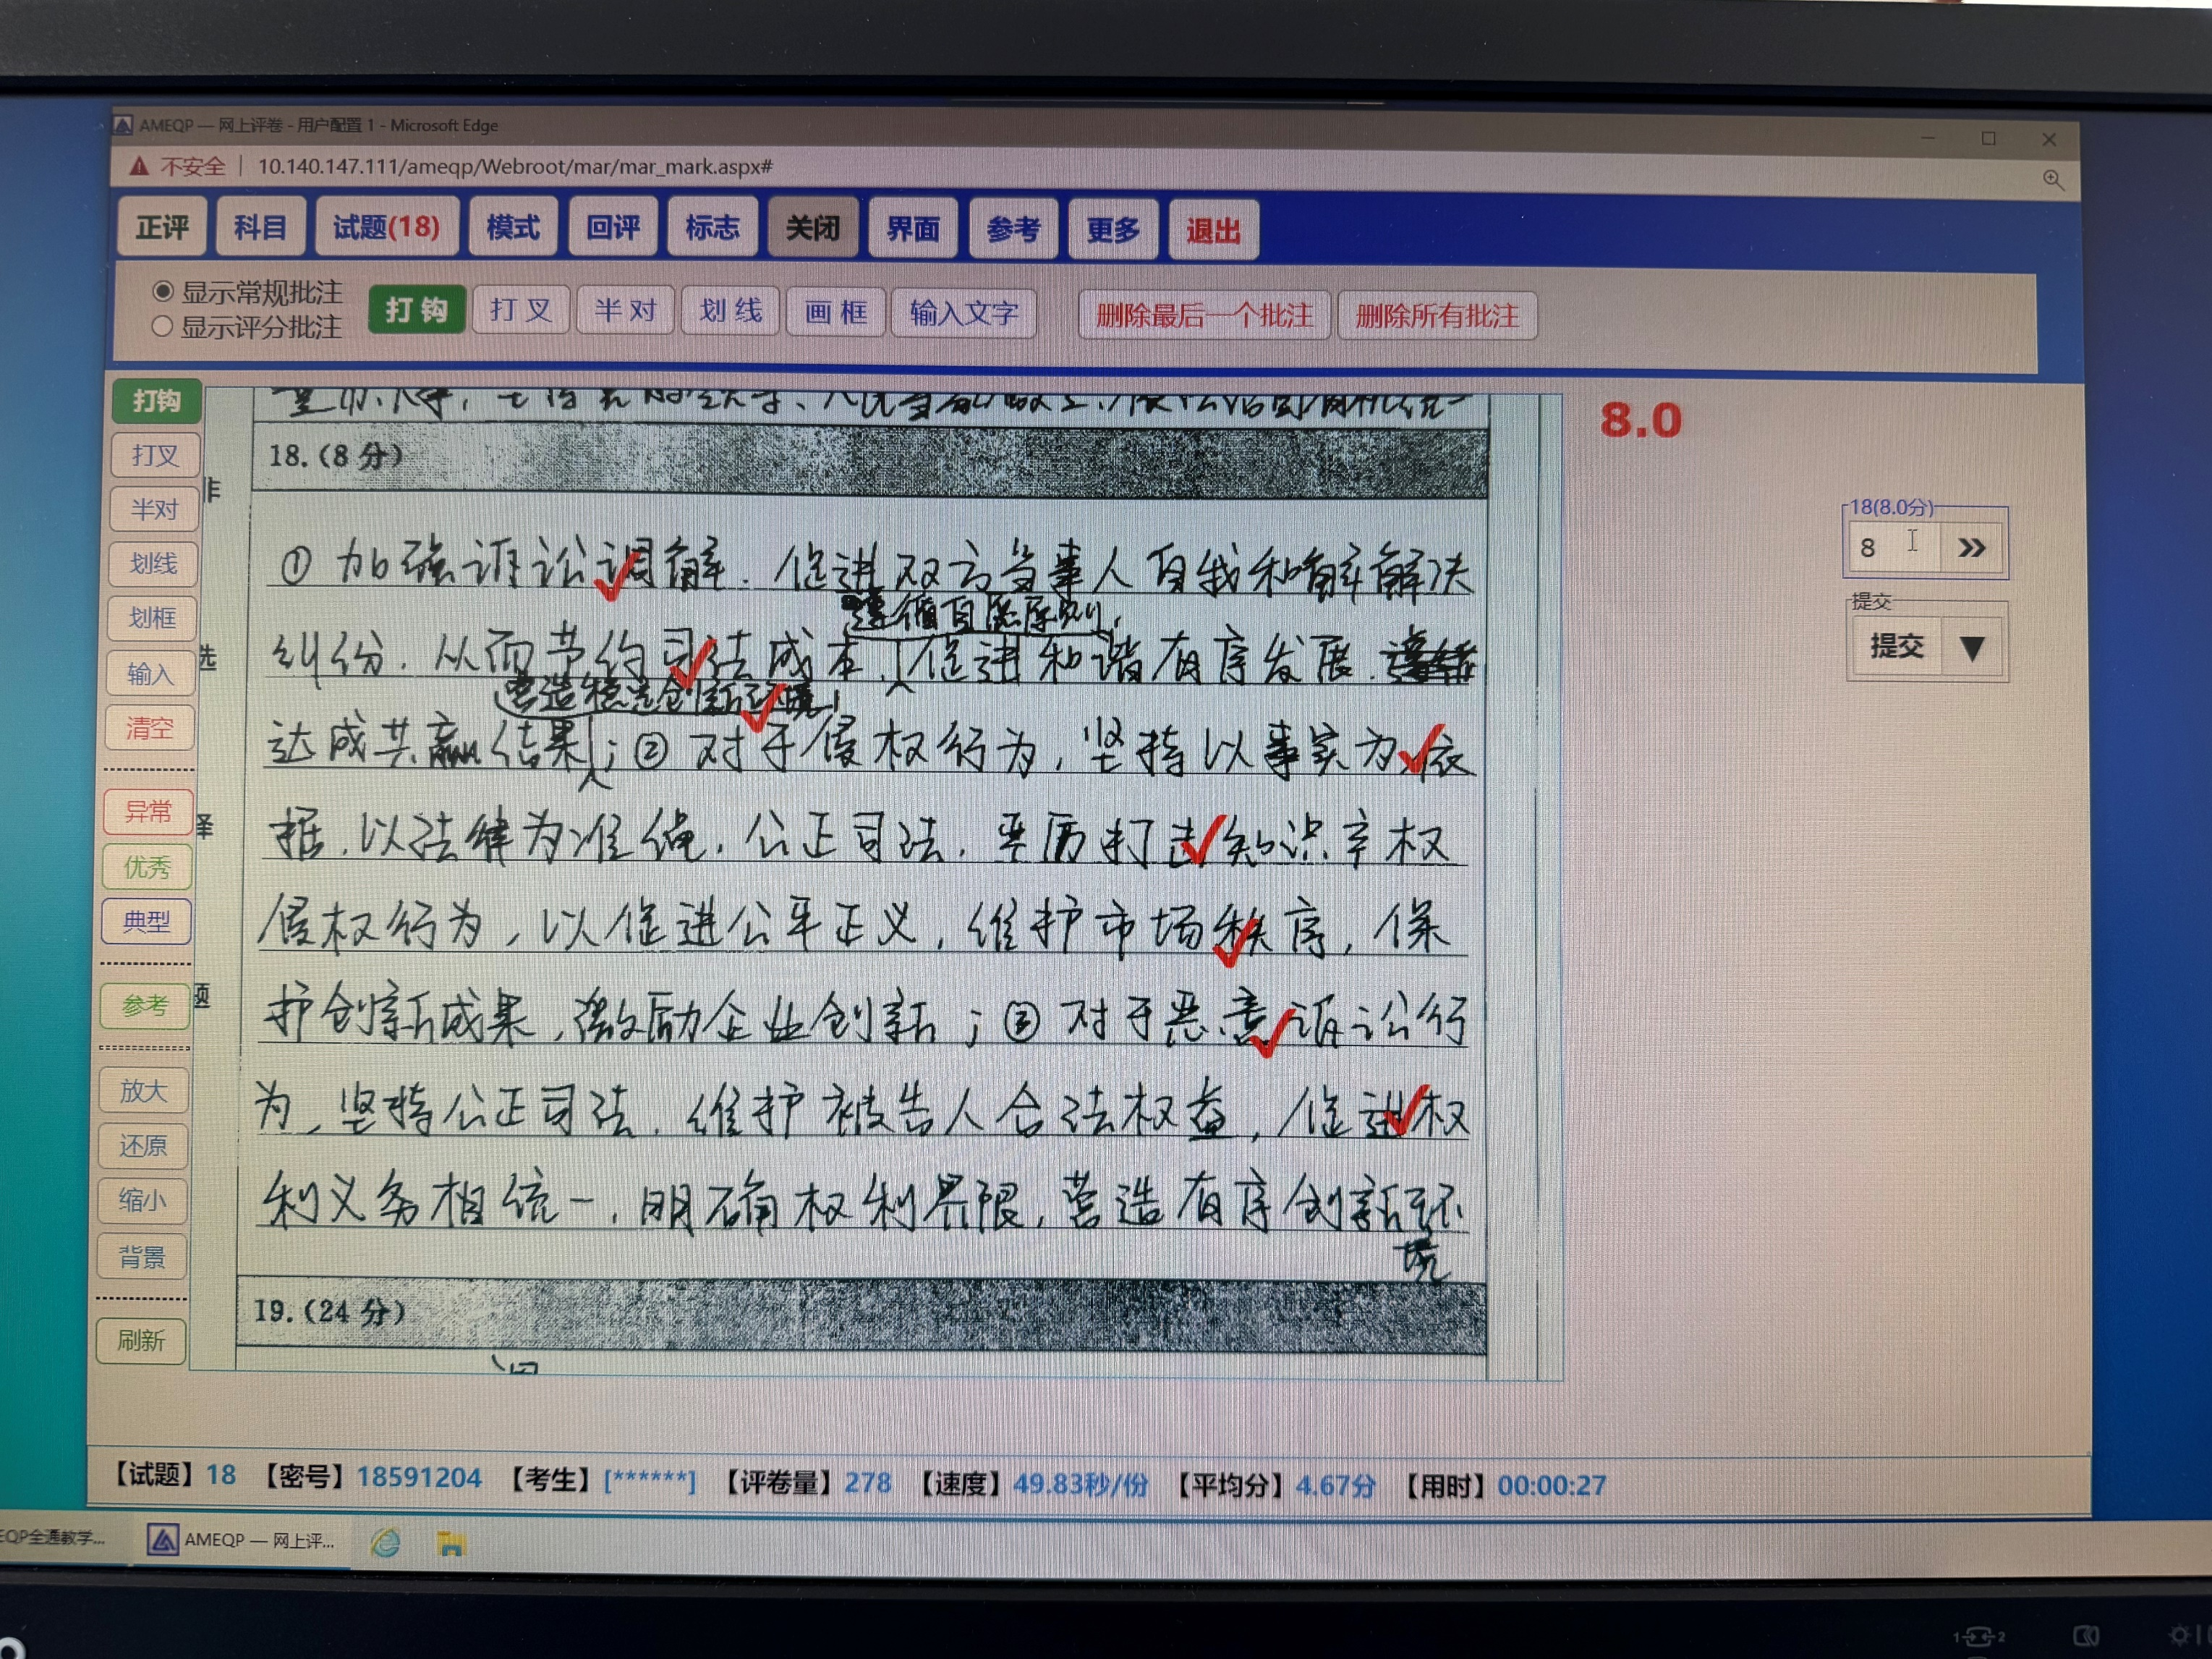 AMEQP — 网上评卷 - 用户配置 1 - Microsoft Edge
不安全 | 10.140.147.111/ameqp/Webroot/mar/mar_mark.aspx#
正评 科目 试题(18) 模式 回评 标志 关闭 界面 参考 更多 退出
显示常规批注
显示评分批注
打钩 打叉 半对 划线 画框 输入文字 删除最后一个批注 删除所有批注
打钩
打叉
半对
划线
划框
输入
清空
异常
优秀
典型
参考
放大
还原
缩小
背景
刷新
非
选
择
题
18.(8分)
①加强诉讼调解.促进双方当事人自我和解解决
遵循自愿原则,
纠纷.从而节约司法成本,促进和谐有序发展.
营造稳定创新环境,
达成共赢结果;②对于侵权行为,坚持以事实为依
据.以法律为准绳.公正司法.严厉打击知识产权
侵权行为,以促进公平正义,维护市场秩序,保
护创新成果,激励企业创新;③对于恶意诉讼行
为,坚持公正司法.维护被告人合法权益,促进权
利义务相统一,明确权利界限,营造有序创新环
境
19.(24分)
8.0
18(8.0分)
8 »
提交
提交 ▼
【试题】18 【密号】18591204 【考生】[******] 【评卷量】278 【速度】49.83秒/份 【平均分】4.67分 【用时】00:00:27
EQP全通教学... AMEQP — 网上评...